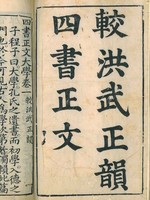 較洪武正韻
四書正文
四書正文大學卷一 較洪武正韻
子程子曰大學孔氏之遺書而初學入德之
門也於今可見古人為學次第者獨賴此篇